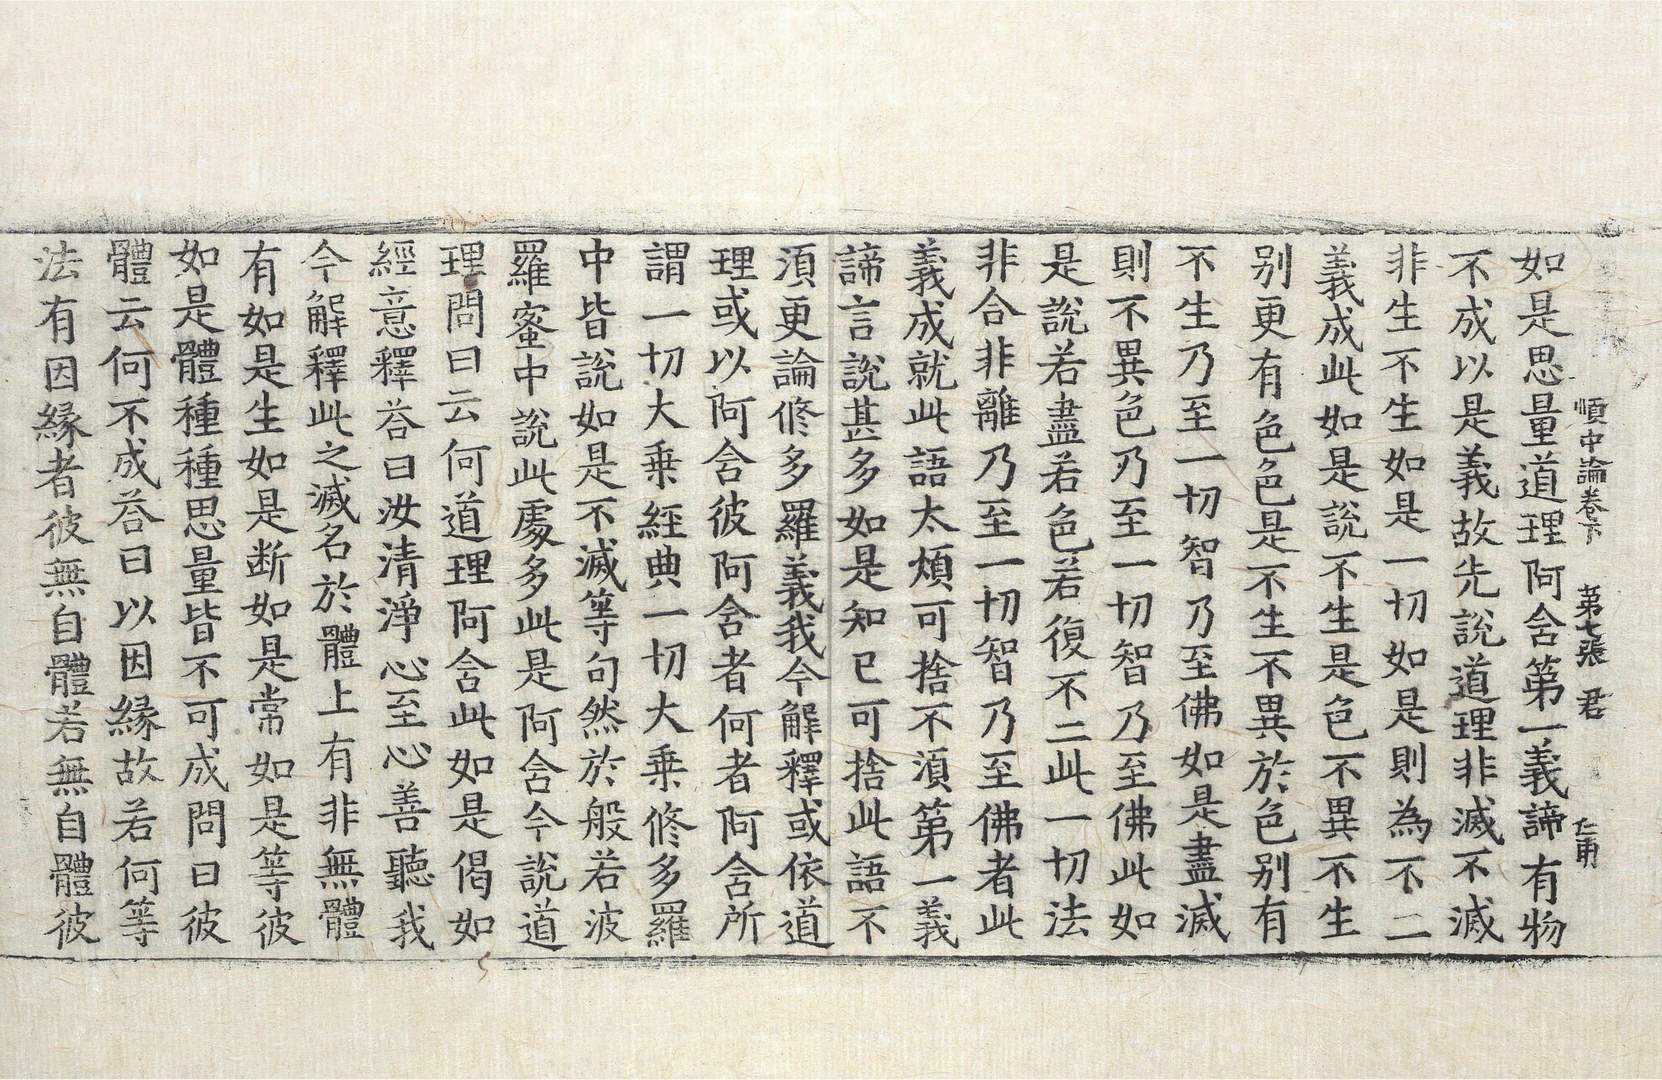 順中論卷下　第七張　君　仁甫
如是思量道理阿含第一義諦有物
不成以是義故先說道理非滅不滅
非生不生如是一切如是則為不二
義成此如是說不生是色不異不生
別更有色色是不生不異於色別有
不生乃至一切智乃至佛如是盡滅
則不異色乃至一切智乃至佛此如
是說若盡若色若復不二此一切法
非合非離乃至一切智乃至佛者此
義成就此語太煩可捨不湏第一義
諦言說甚多如是知已可捨此語不
湏更論修多羅義我今解釋或依道
理或以阿含彼阿含者何者阿含所
謂一切大乗經典一切大乗修多羅
中皆說如是不滅等句然於般若波
羅蜜中說此處多此是阿含今說道
理問曰云何道理阿含此如是偈如
經意釋荅曰汝清淨心至心善聽我
今解釋此之滅名於體上有非無體
有如是生如是断如是常如是等彼
如是體種種思量皆不可成問曰彼
體云何不成荅曰以因縁故若何等
法有因縁者彼無自體若無自體彼